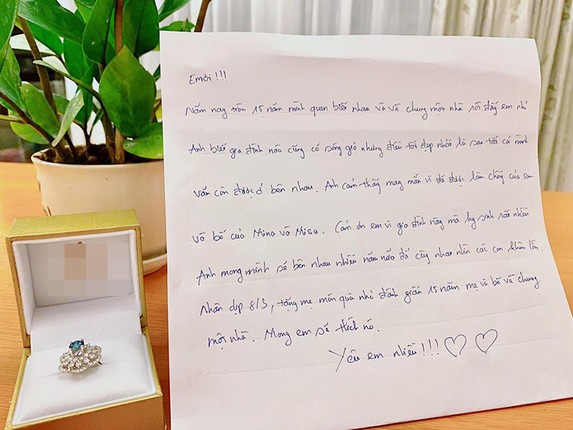 Em ơi!!!
Năm nay tròn 15 năm mình quen biết nhau và về chung một nhà rồi đấy em nhỉ
Anh biết gia đình nào cũng có sóng gió nhưng điều tốt đẹp nhất là sau tất cả mình
vẫn còn được ở bên nhau. Anh cảm thấy may mắn vì đã được làm chồng của em
và bố của Mino và Misu. Cám ơn em vì gia đình này mà hy sinh rất nhiều
Anh mong mình sẽ bên nhau nhiều năm nữa để cùng nhau nhìn các con khôn lớn
Nhân dịp 8/3, tặng mẹ món quà nhỏ đánh dấu 15 năm mẹ và bố về chung
một nhà. Mong em sẽ thích nó.
Yêu em nhiều!!!